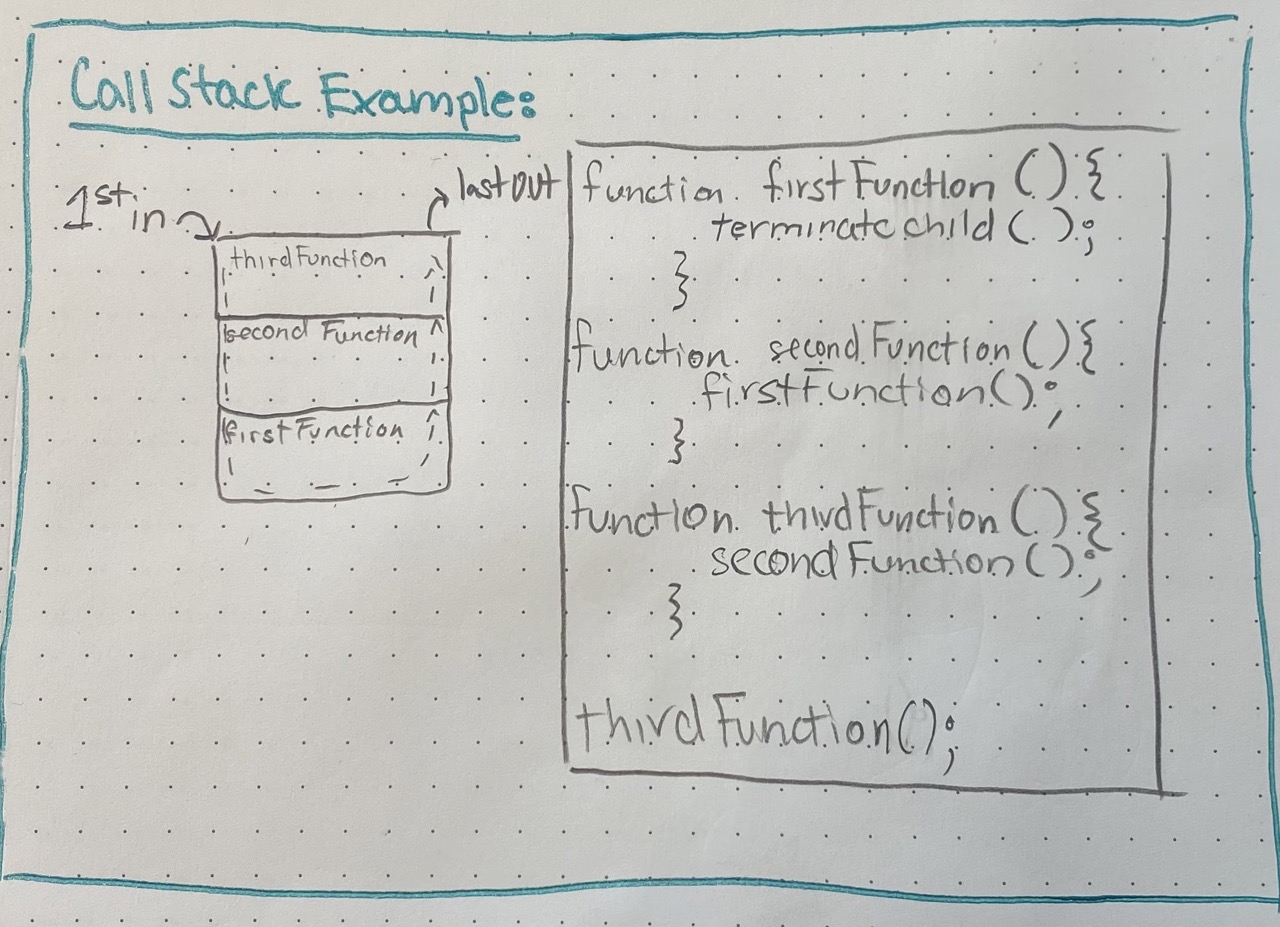 Call Stack Example:
1st in
last out
thirdFunction
second Function
firstFunction
function firstFunction () {
terminate child ( );
}
function secondFunction () {
firstFunction();
}
function thirdFunction () {
secondFunction ();
}
thirdFunction();